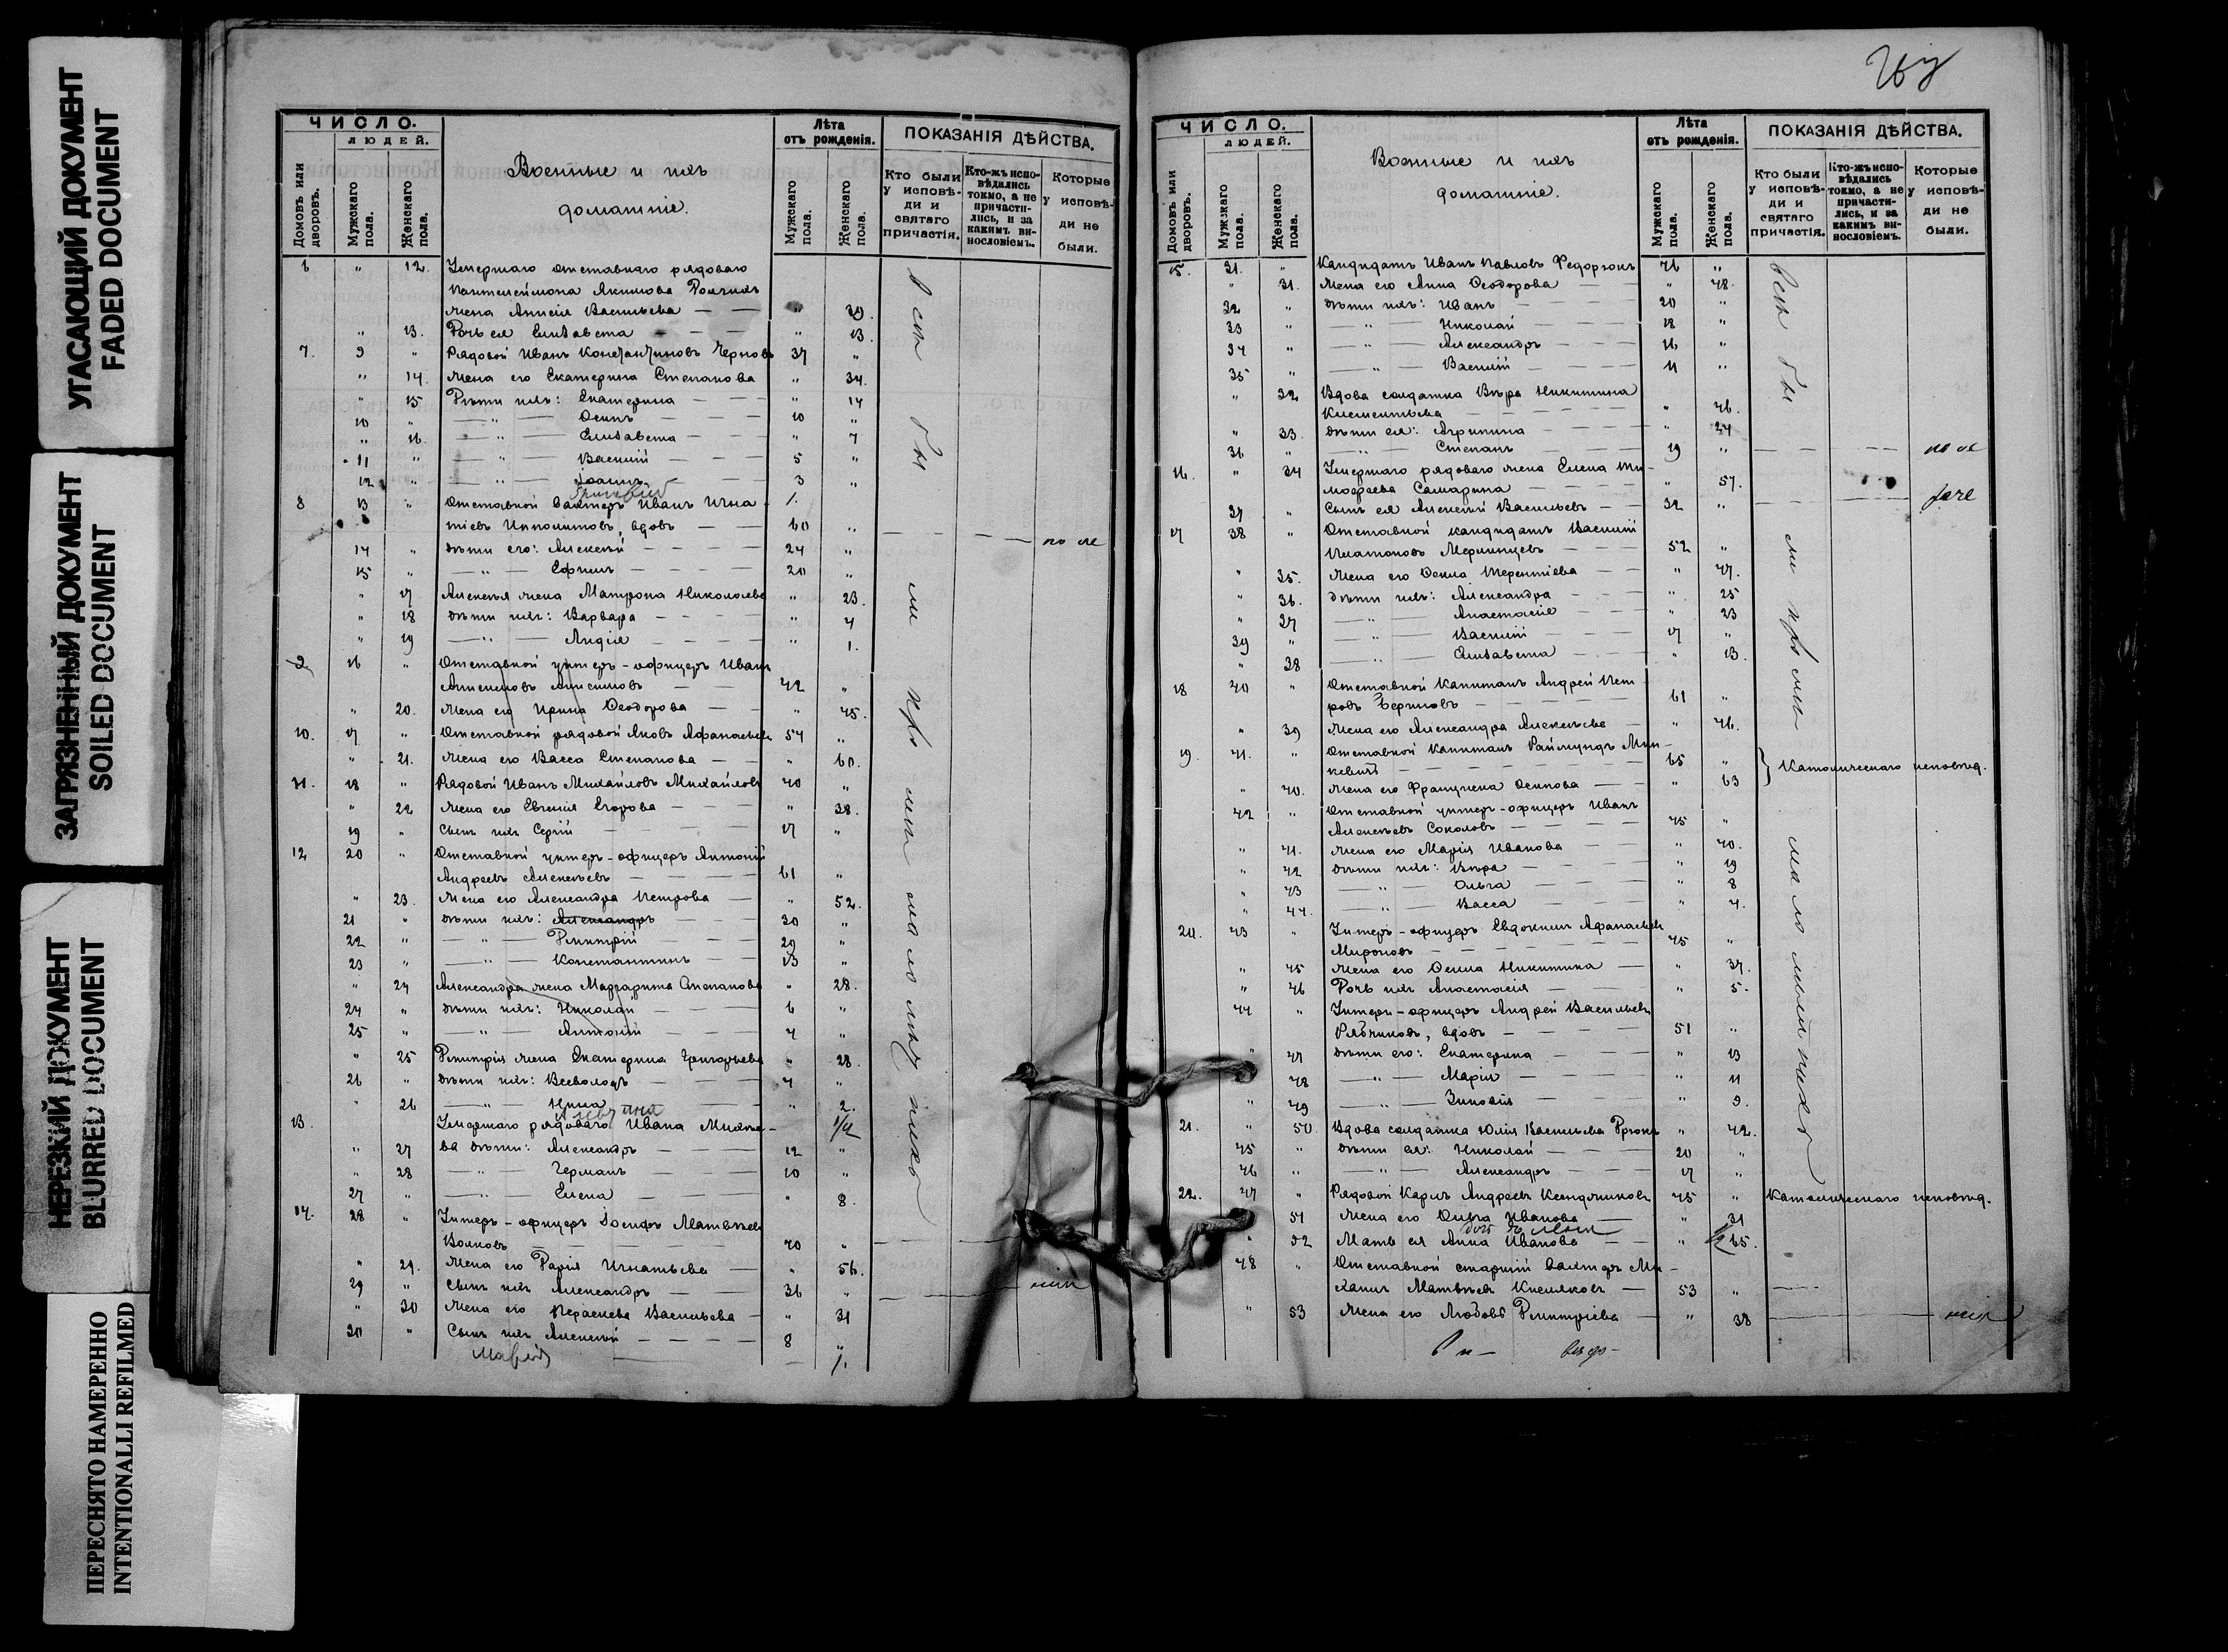 УГАСАЮЩИЙ ДОКУМЕНТ
FADED DOCUMENT
ЗАГРЯЗНЕННЫЙ ДОКУМЕНТ
SOILED DOCUMENT
НЕРЕЗКИЙ ДОКУМЕНТ
BLURRED DOCUMENT
ПЕРЕСНЯТО НАМЕРЕННО
INTENTIONALLI REFILMED
ЧИСЛО.
ЛЮДЕЙ.
Домовъ или дворовъ.
Мужскаго пола.
Женскаго пола.
Военные и ихъ
домашніе.
Лѣта
отъ рожденія.
Мужскаго пола.
Женскаго пола.
ПОКАЗАНІЯ ДѢЙСТВА.
Кто были у исповѣ-ди и святаго причастія.
Кто-жъ испо-вѣдались токмо, а не причасти-лись, и за какимъ ви-нословіемъ.
Которые у исповѣ-ди не были.
6 " 12. Умершаго отставнаго рядоваго
Пантелеймона Акимова
жена Анисія Васильева — — " 39.
" 13. Дочь ея Елизавета — — " 13.
7. 9 " Рядовой Иванъ Константиновъ Черновъ 37 "
" 14. Жена его Екатерина Степанова " 34.
" 15 Дѣти ихъ: Екатерина — — " 14
10 " — " — Осипъ — — 10 "
" 16. — " — Елизавета — — " 7
11 " — " — Василій — — 5 "
12 " — " — Іоаннъ — 3 "
8 13 " Отставной вахтеръ Иванъ Игна-
тіевъ Ипполитовъ, вдовъ — — 60 "
14 " дѣти его: Алексѣй — — 24 "
15 " — " — Ефимъ — — 20 "
" 17 Алексѣя жена Матрона Николаева " 23.
" 18 дѣти ихъ: Варвара — — " 4
" 19 — " — Лидія — — " 1.
9 16 " Отставной унтеръ-офицеръ Иванъ
Анисимовъ Анисимовъ — — 42 "
" 20. Жена его Ирина Ѳеодорова — " 45.
10. 17 " Отставной рядовой Яковъ Афанасьевъ 54 "
" 21. Жена его Васса Степанова — — " 60.
11. 18 " Рядовой Иванъ Михайловъ Михайловъ 40 "
" 22 Жена его Евгенія Егорова — — " 38.
19 " Сынъ ихъ Сергій — — 17 "
12 20 " Отставной унтеръ-офицеръ Антоній
Андреевъ Алексѣевъ — — 61 "
" 23. Жена его Александра Петрова — " 52.
21 " дѣти ихъ: Александръ — — 30 "
22 " — " — Дмитрій — — 29 "
23 " — " — Константинъ — — 13 "
" 24 Александра жена Маргарита Степанова " 28.
24 " дѣти ихъ: Николай — — 6 "
25 " — " — Антоній — — 4 "
" 25 Дмитрія жена Екатерина Григорьева " 28.
26 " дѣти ихъ: Всеволодъ — — 4 "
" 26 — " — Нина — — " 2.
13. Умершаго рядоваго Ивана
" 27 ва дѣти: Александръ — — 12 "
" 28 — " — Германъ — — 10 "
27 " — " — Елена — — " 8.
14. 28 " Унтеръ-офицеръ Іосифъ Матвѣевъ
Волковъ — — 70 "
" 29. Жена его Дарія Игнатьева — " 56.
29 " Сынъ ихъ Александръ — — 36 "
" 30 Жена его Параскева Васильева — " 31
30 " Сынъ ихъ Алексѣй — — 8 "
ЧИСЛО.
ЛЮДЕЙ.
Домовъ или дворовъ.
Мужскаго пола.
Женскаго пола.
Военные и ихъ
домашніе.
Лѣта
отъ рожденія.
Мужскаго пола.
Женскаго пола.
ПОКАЗАНІЯ ДѢЙСТВА.
Кто были у исповѣ-ди и святаго причастія.
Кто-жъ испо-вѣдались токмо, а не причасти-лись, и за какимъ ви-нословіемъ.
Которые у исповѣ-ди не были.
15. 31. " Кандидатъ Иванъ Павловъ Федорюкъ 46 "
" 31. Жена его Анна Ѳеодорова — — " 48.
32 " дѣти ихъ: Иванъ — — 20 "
33 " — " — Николай — — 18 "
34 " — " — Александръ — — 16 "
35 " — " — Василій — — 11 "
" 32 Вдова солдатка Вѣра Никитина
Климентьева — — " 46.
" 33. дѣти ея: Агрипина — — " 24
36 " — " — Степанъ — — 19 "
16. " 34 Умершаго рядоваго жена Елена Ти-
моѳеева Самарина — — " 57.
37 " Сынъ ея Алексѣй Васильевъ — — 32 "
17 38 " Отставной кандидатъ Василій
Платоновъ Мерлинцевъ — — 52 "
" 35. Жена его Ѳекла Терентіева — — " 47.
" 36. дѣти ихъ: Александра — — " 25
" 37 — " — Анастасія — — " 23
39 " — " — Василій — — 17 "
" 38 — " — Елизавета — — " 13.
18 40 " Отставной капитанъ Андрей Пет-
ровъ — — 61 "
" 39 Жена его Александра Алексѣева — " 46.
19. 41. " Отставной капитанъ Раймундъ Мин-
кевичъ — — 65 " Католическаго исповѣд.
" 40. Жена его Франциска Осипова — — " 63
42 " Отставной унтеръ-офицеръ Иванъ
Алексѣевъ Соколовъ — — 45 "
" 41. Жена его Марія Иванова — — " 40.
" 42 дѣти ихъ: Вѣра — — " 19
" 43 — " — Ольга — — " 8
" 44. — " — Васса — — " 4.
20. 43 " Унтеръ-офицеръ Евдокимъ Афанасьевъ
Мироновъ — — 45 "
" 45 Жена его Ѳекла Никитина — " 37.
" 46 Дочь ихъ Анастасія — — " 5.
44 " Унтеръ-офицеръ Андрей Васильевъ
Рябчиковъ, вдовъ — — 51 "
" 47 дѣти его: Екатерина — — " 13
" 48 — " — Марія — — " 11
" 49 — " — Зиновія — — " 9.
21. " 50. Вдова солдатка Юлія Васильева " 42.
45 " дѣти ея: Николай — — 20 "
46 " — " — Александръ — — 17 "
22. 47 " Рядовой Карлъ Андреевъ 45 " Католическаго исповѣд.
" 51 Жена его Ольга Иванова — " 31
" 52 Мать ея Анна Иванова — — " 65.
48 " Отставной старшій вахтеръ Ми-
хаилъ Матвѣевъ Кисляковъ — 53 "
" 53 Жена его Любовь Дмитріева — " 38